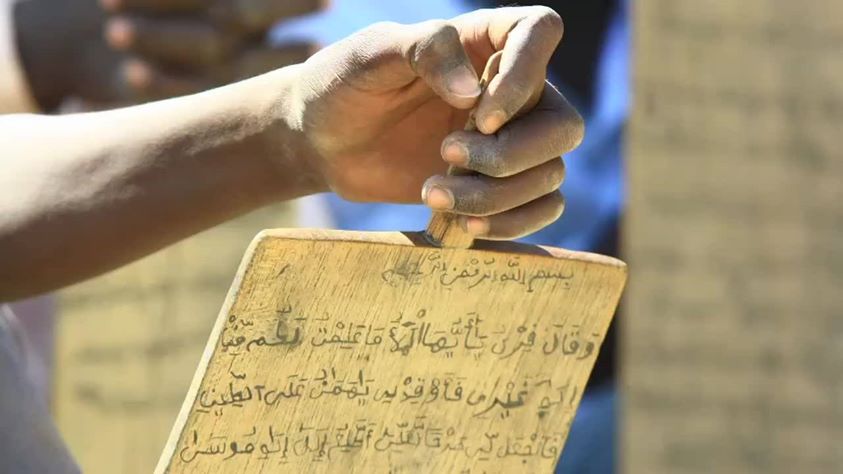 بسم الله الرحمن الرحيم
وَقَالَ فِرْعَوْنُ يَٰأَيُّهَا الْمَلَأُ مَا عَلِمْتُ لَكُم مِّنْ
إِلَٰهٍ غَيْرِي فَأَوْقِدْ لِي يَٰهَٰمَٰنُ عَلَى الطِّينِ
فَاجْعَل لِّي صَرْحًا لَّعَلِّي أَطَّلِعُ إِلَىٰ إِلَٰهِ مُوسَىٰ